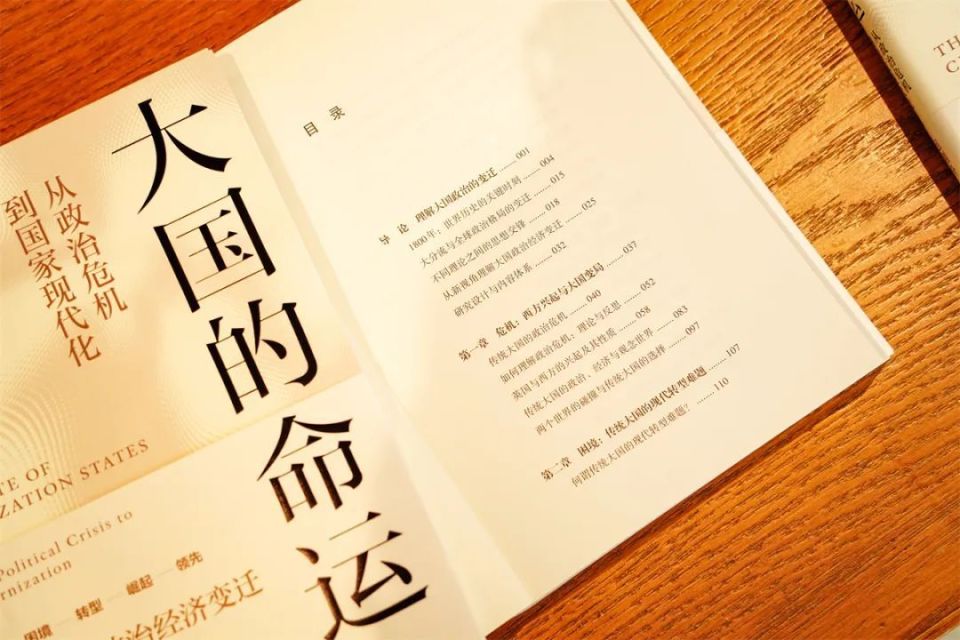 大国的命运
从政治危机
到国家现代化
TE OF
ZATION STATES
Political Crisis to
rnization
困境 转型 崛起 领先
政治经济变迁
目 录
导 论 理解大国政治的变迁 ……001
1800年：世界历史的关键时刻 ……004
大分流与全球政治格局的变迁 ……015
不同理论之间的思想交锋 ……018
从新视角理解大国政治经济变迁 ……025
研究设计与内容体系 ……032
第一章 危机：西方兴起与大国变局 ……037
传统大国的政治危机 ……040
如何理解政治危机：理论与反思 ……052
英国与西方的兴起及其性质 ……058
传统大国的政治、经济与观念世界 ……083
两个世界的碰撞与传统大国的选择 ……097
第二章 困境：传统大国的现代转型难题 ……107
何谓传统大国的现代转型难题？ ……110
TH
C